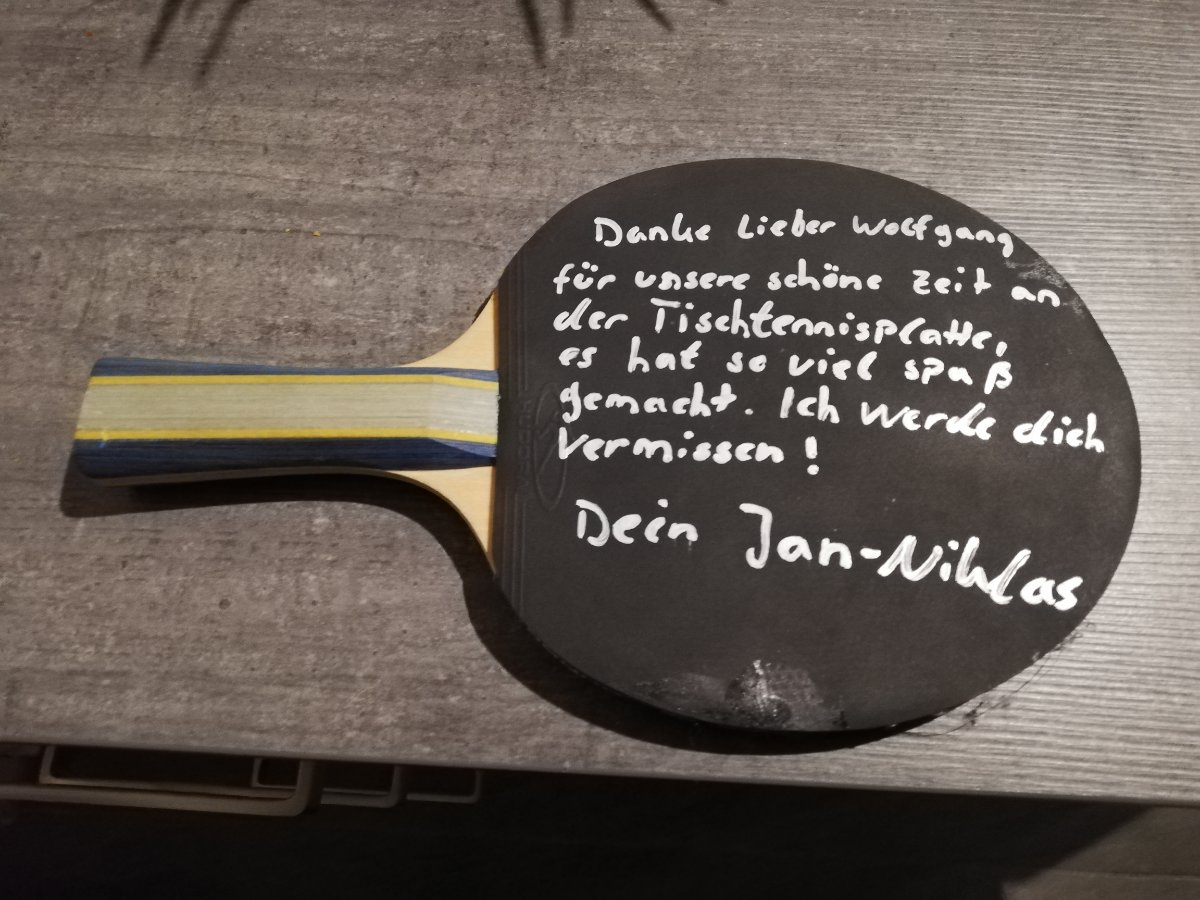 Danke Lieber Wolfgang
für unsere schöne Zeit an
der Tischtennisplatte,
es hat so viel spaß
gemacht. Ich werde dich
vermissen!
Dein Jan-Niklas